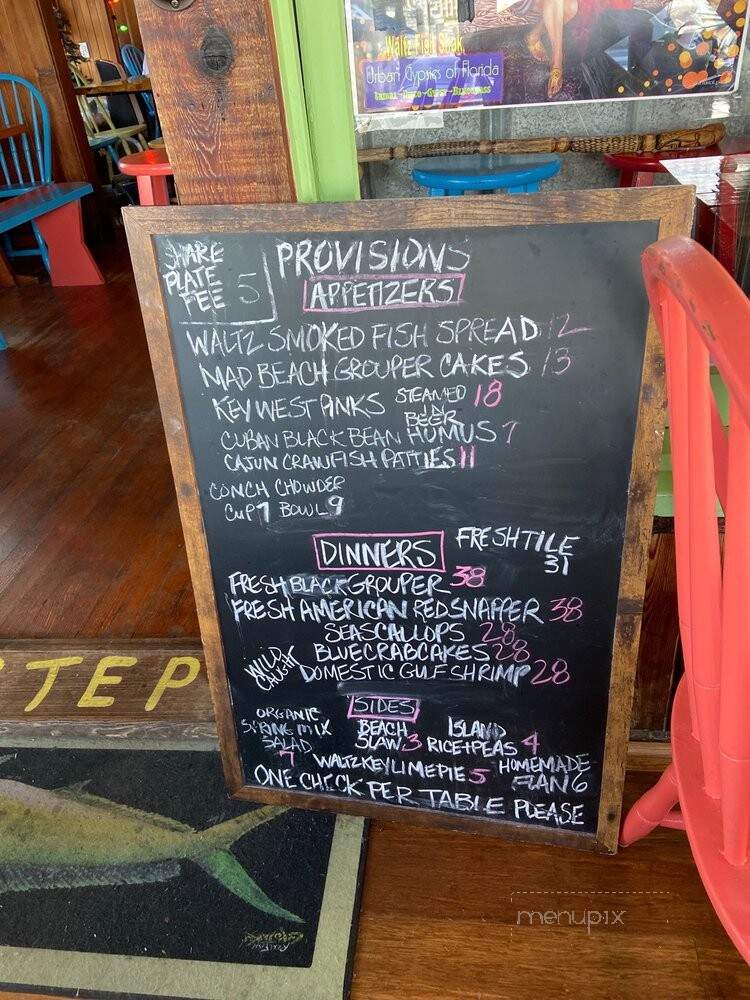 Waltz Fish Shak
Urban Gypsies of Florida
SHARE
PLATE
FEE 5
PROVISIONS
APPETIZERS
WALTZ SMOKED FISH SPREAD 12
MAD BEACH GROUPER CAKES 13
KEY WEST PINKS STEAMED IN BEER 18
CUBAN BLACK BEAN HUMUS 7
CAJUN CRAWFISH PATTIES 11
CONCH CHOWDER
CUP 7 BOWL 9
DINNERS
FRESH TILE
31
FRESH BLACK GROUPER 38
FRESH AMERICAN RED SNAPPER 38
SEA SCALLOPS 28
BLUE CRAB CAKES 28
WILD
CAUGHT
DOMESTIC GULF SHRIMP 28
SIDES
ORGANIC
SPRING MIX
SALAD
7
BEACH
SLAW 3
ISLAND
RICE + PEAS 4
WALTZ KEY LIME PIE 5
HOMEMADE
FLAN 6
ONE CHECK PER TABLE PLEASE
STEP
menupix